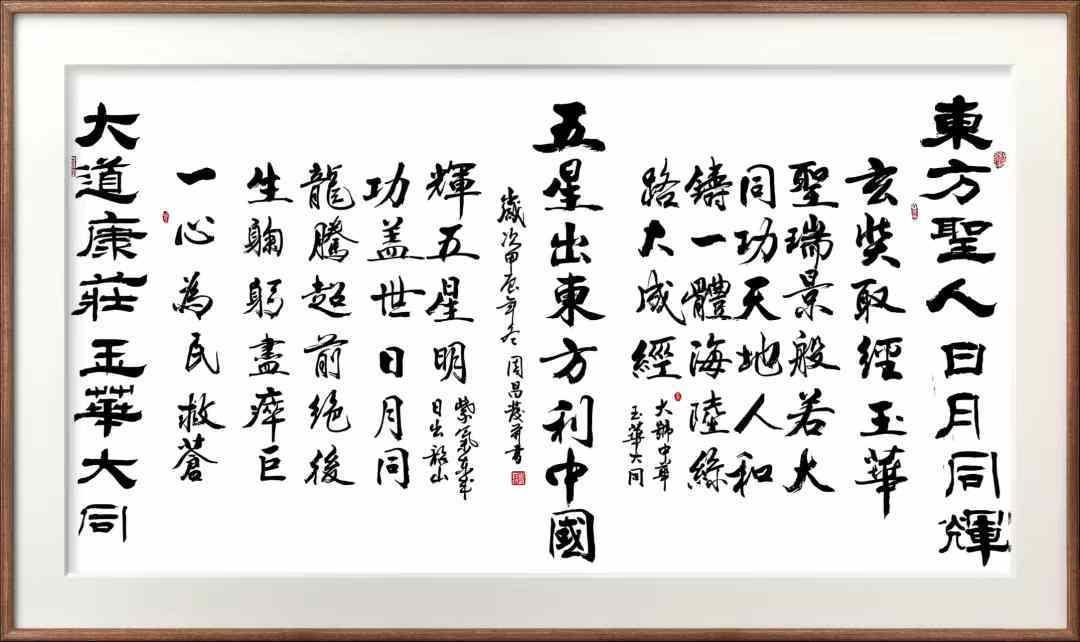 東方聖人日月同輝
玄奘取經玉華
聖瑞景般若大
同功天地人和
鑄一體海陸絲
路大成經
大號中華
玉華大同
五星出東方利中國
大道康莊玉華大同
一心為民救蒼
生鞠躬盡瘁巨
龍騰超前絕後
功蓋世日月同
輝五星明
日出韶山
紫氣東來
歲次甲辰年冬 周昌并書